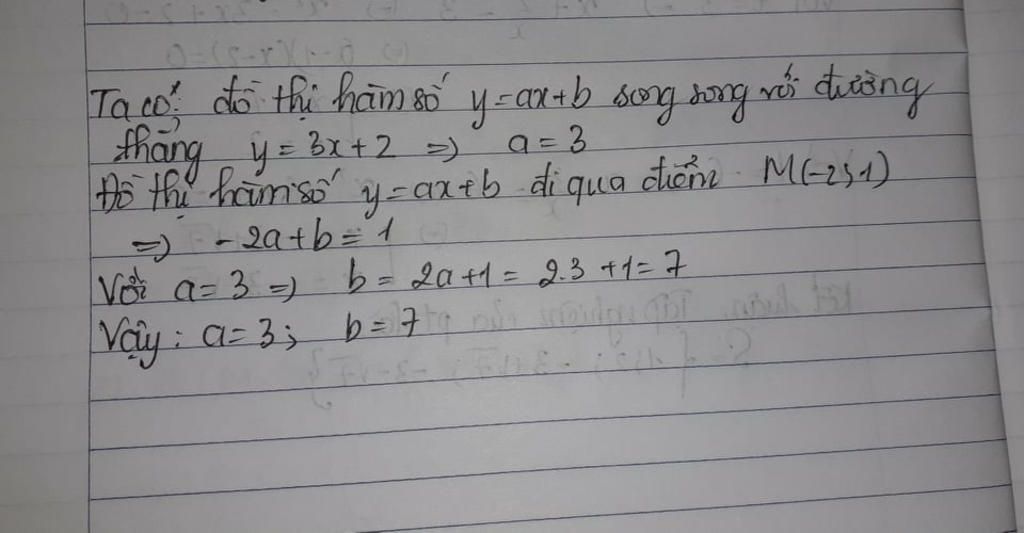 Ta có: đồ thị hàm số y=ax+b song song với đường
thẳng y = 3x+2 => a = 3
Đồ thị hàm số y=ax+b đi qua điểm M(-2;1)
=> -2a+b = 1
Với a= 3 => b = 2a+1 = 2.3 +1= 7
Vậy: a=3; b=7